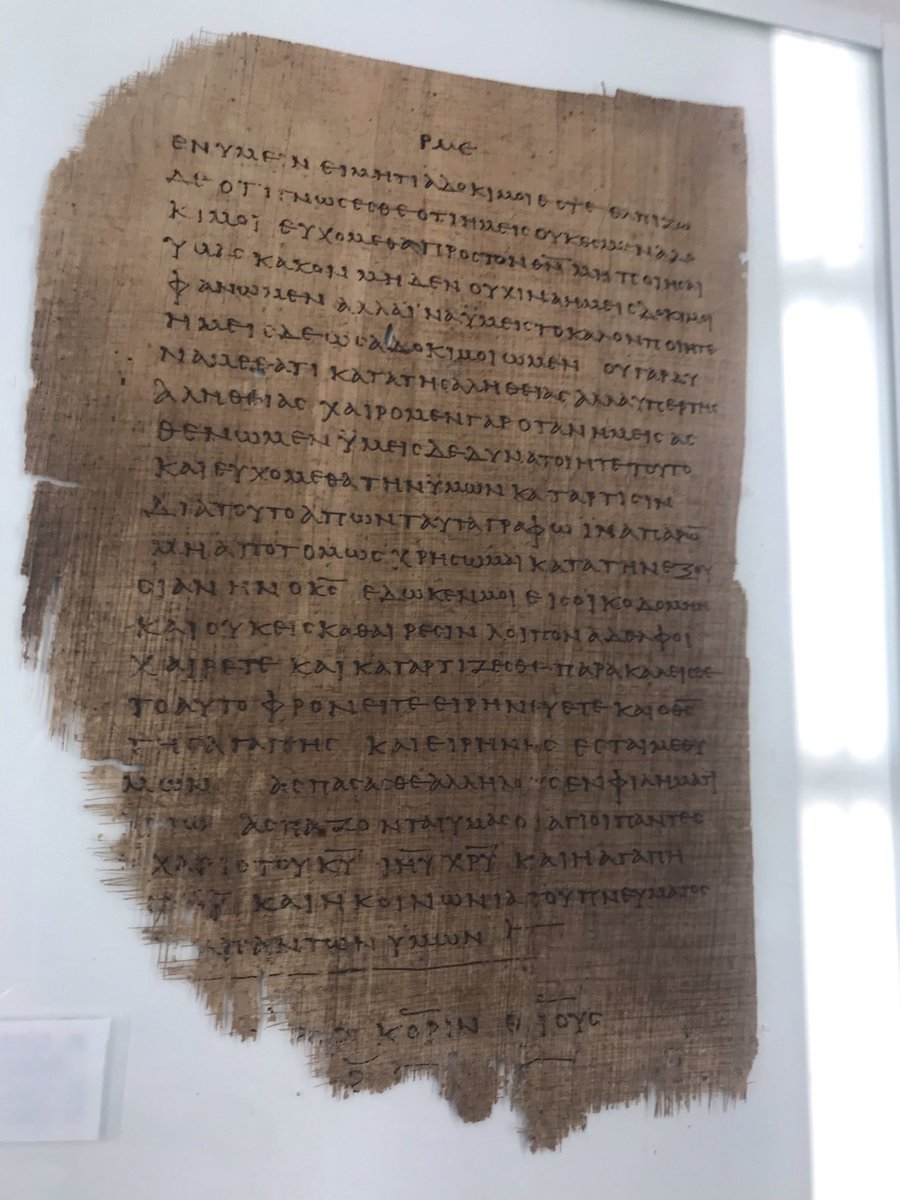 ΡΜΕ
ΕΝΥΜΕΙΝ ΕΙΜΗΤΙΑΔΟΚΙΜΟΙΕϹΤΕ ΕΛΠΙΖΩ
ΔΕ ΟΤΙΓΝΩϹΕϹΘΕ ΟΤΙΗΜΕΙϹΟΥΚΕϹΜΕΝΑΔΟ
ΚΙΜΟΙ ΕΥΧΟΜΕΘΑΠΡΟϹΤΟΝΘ̅Ν̅ ΜΗΠΟΙΗϹΑΙ
ΥΜΑϹ ΚΑΚΟΝ ΜΗΔΕΝ ΟΥΧΙΝΑΗΜΕΙϹΔΟΚΙΜΟΙ
ΦΑΝΩΜΕΝ ΑΛΛΑΙΝΑΥΜΕΙϹΤΟΚΑΛΟΝΠΟΙΗΤΕ
ΗΜΕΙϹΔΕΩϹΑΔΟΚΙΜΟΙΩΜΕΝ ΟΥΓΑΡΔΥ
ΝΑΜΕΘΑΤΙ ΚΑΤΑΤΗϹΑΛΗΘΕΙΑϹ ΑΛΛΑΥΠΕΡΤΗϹ
ΑΛΗΘΕΙΑϹ ΧΑΙΡΟΜΕΝΓΑΡΟΤΑΝΗΜΕΙϹ ΑϹ
ΘΕΝΩΜΕΝ ΥΜΕΙϹΔΕΔΥΝΑΤΟΙΗΤΕΤΟΥΤΟ
ΚΑΙΕΥΧΟΜΕΘΑΤΗΝΥΜΩΝ ΚΑΤΑΡΤΙϹΙΝ
ΔΙΑΤΟΥΤΟΑΠΩΝΤΑΥΤΑΓΡΑΦΩ ΙΝΑΠΑΡΩ̅
ΜΗΑΠΟΤΟΜΩϹ ΧΡΗϹΩΜΑΙ ΚΑΤΑΤΗΝΕΞΟΥ
ϹΙΑΝ ΗΝΟΚ̅Ϲ̅ ΕΔΩΚΕΝΜΟΙ ΕΙϹΟΙΚΟΔΟΜΗΝ
ΚΑΙΟΥΚΕΙϹΚΑΘΑΙΡΕϹΙΝ ΛΟΙΠΟΝΑΔΕΛΦΟΙ
ΧΑΙΡΕΤΕ ΚΑΙΚΑΤΑΡΤΙΖΕϹΘΕ ΠΑΡΑΚΑΛΕΙϹΘΕ
ΤΟΑΥΤΟΦΡΟΝΕΙΤΕ ΕΙΡΗΝΕΥΕΤΕ ΚΑΙΟΘ̅Ϲ̅
ΤΗϹΑΓΑΠΗϹ ΚΑΙΕΙΡΗΝΗϹ ΕϹΤΑΙΜΕΘΥ
ΜΩΝ ΑϹΠΑϹΑϹΘΕΑΛΛΗΛΟΥϹΕΝΦΙΛΗΜΑΤΙ
ΓΙΩ ΑϹΠΑΖΟΝΤΑΙΥΜΑϹΟΙΑΓΙΟΙΠΑΝΤΕϹ
ΧΑΡΙϹΤΟΥΚ̅Υ̅ ΙΗ̅Υ̅ ΧΡ̅Υ̅ ΚΑΙΗΑΓΑΠΗ
Υ̅ ΚΑΙΗΚΟΙΝΩΝΙΑΤΟΥΠΝΕΥΜΑΤΟϹ
ΑΠΑΝΤΩΝ ΥΜΩΝ
ΚΟΡΙΝΘΙΟΥϹ